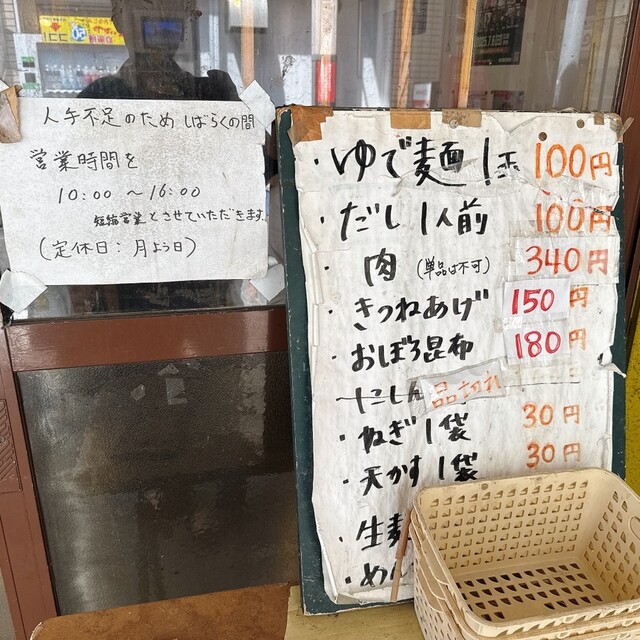 人手不足のためしばらくの間
営業時間を
10:00 〜 16:00
短縮営業とさせていただきます
(定休日：月よう日)
・ゆで麺 1玉 100円
・だし 1人前 100円
・肉 (単品は不可) 340円
・きつねあげ 150円
・おぼろ昆布 180円
にしん 品切れ
・ねぎ 1袋 30円
・天かす 1袋 30円
・生麺
・め